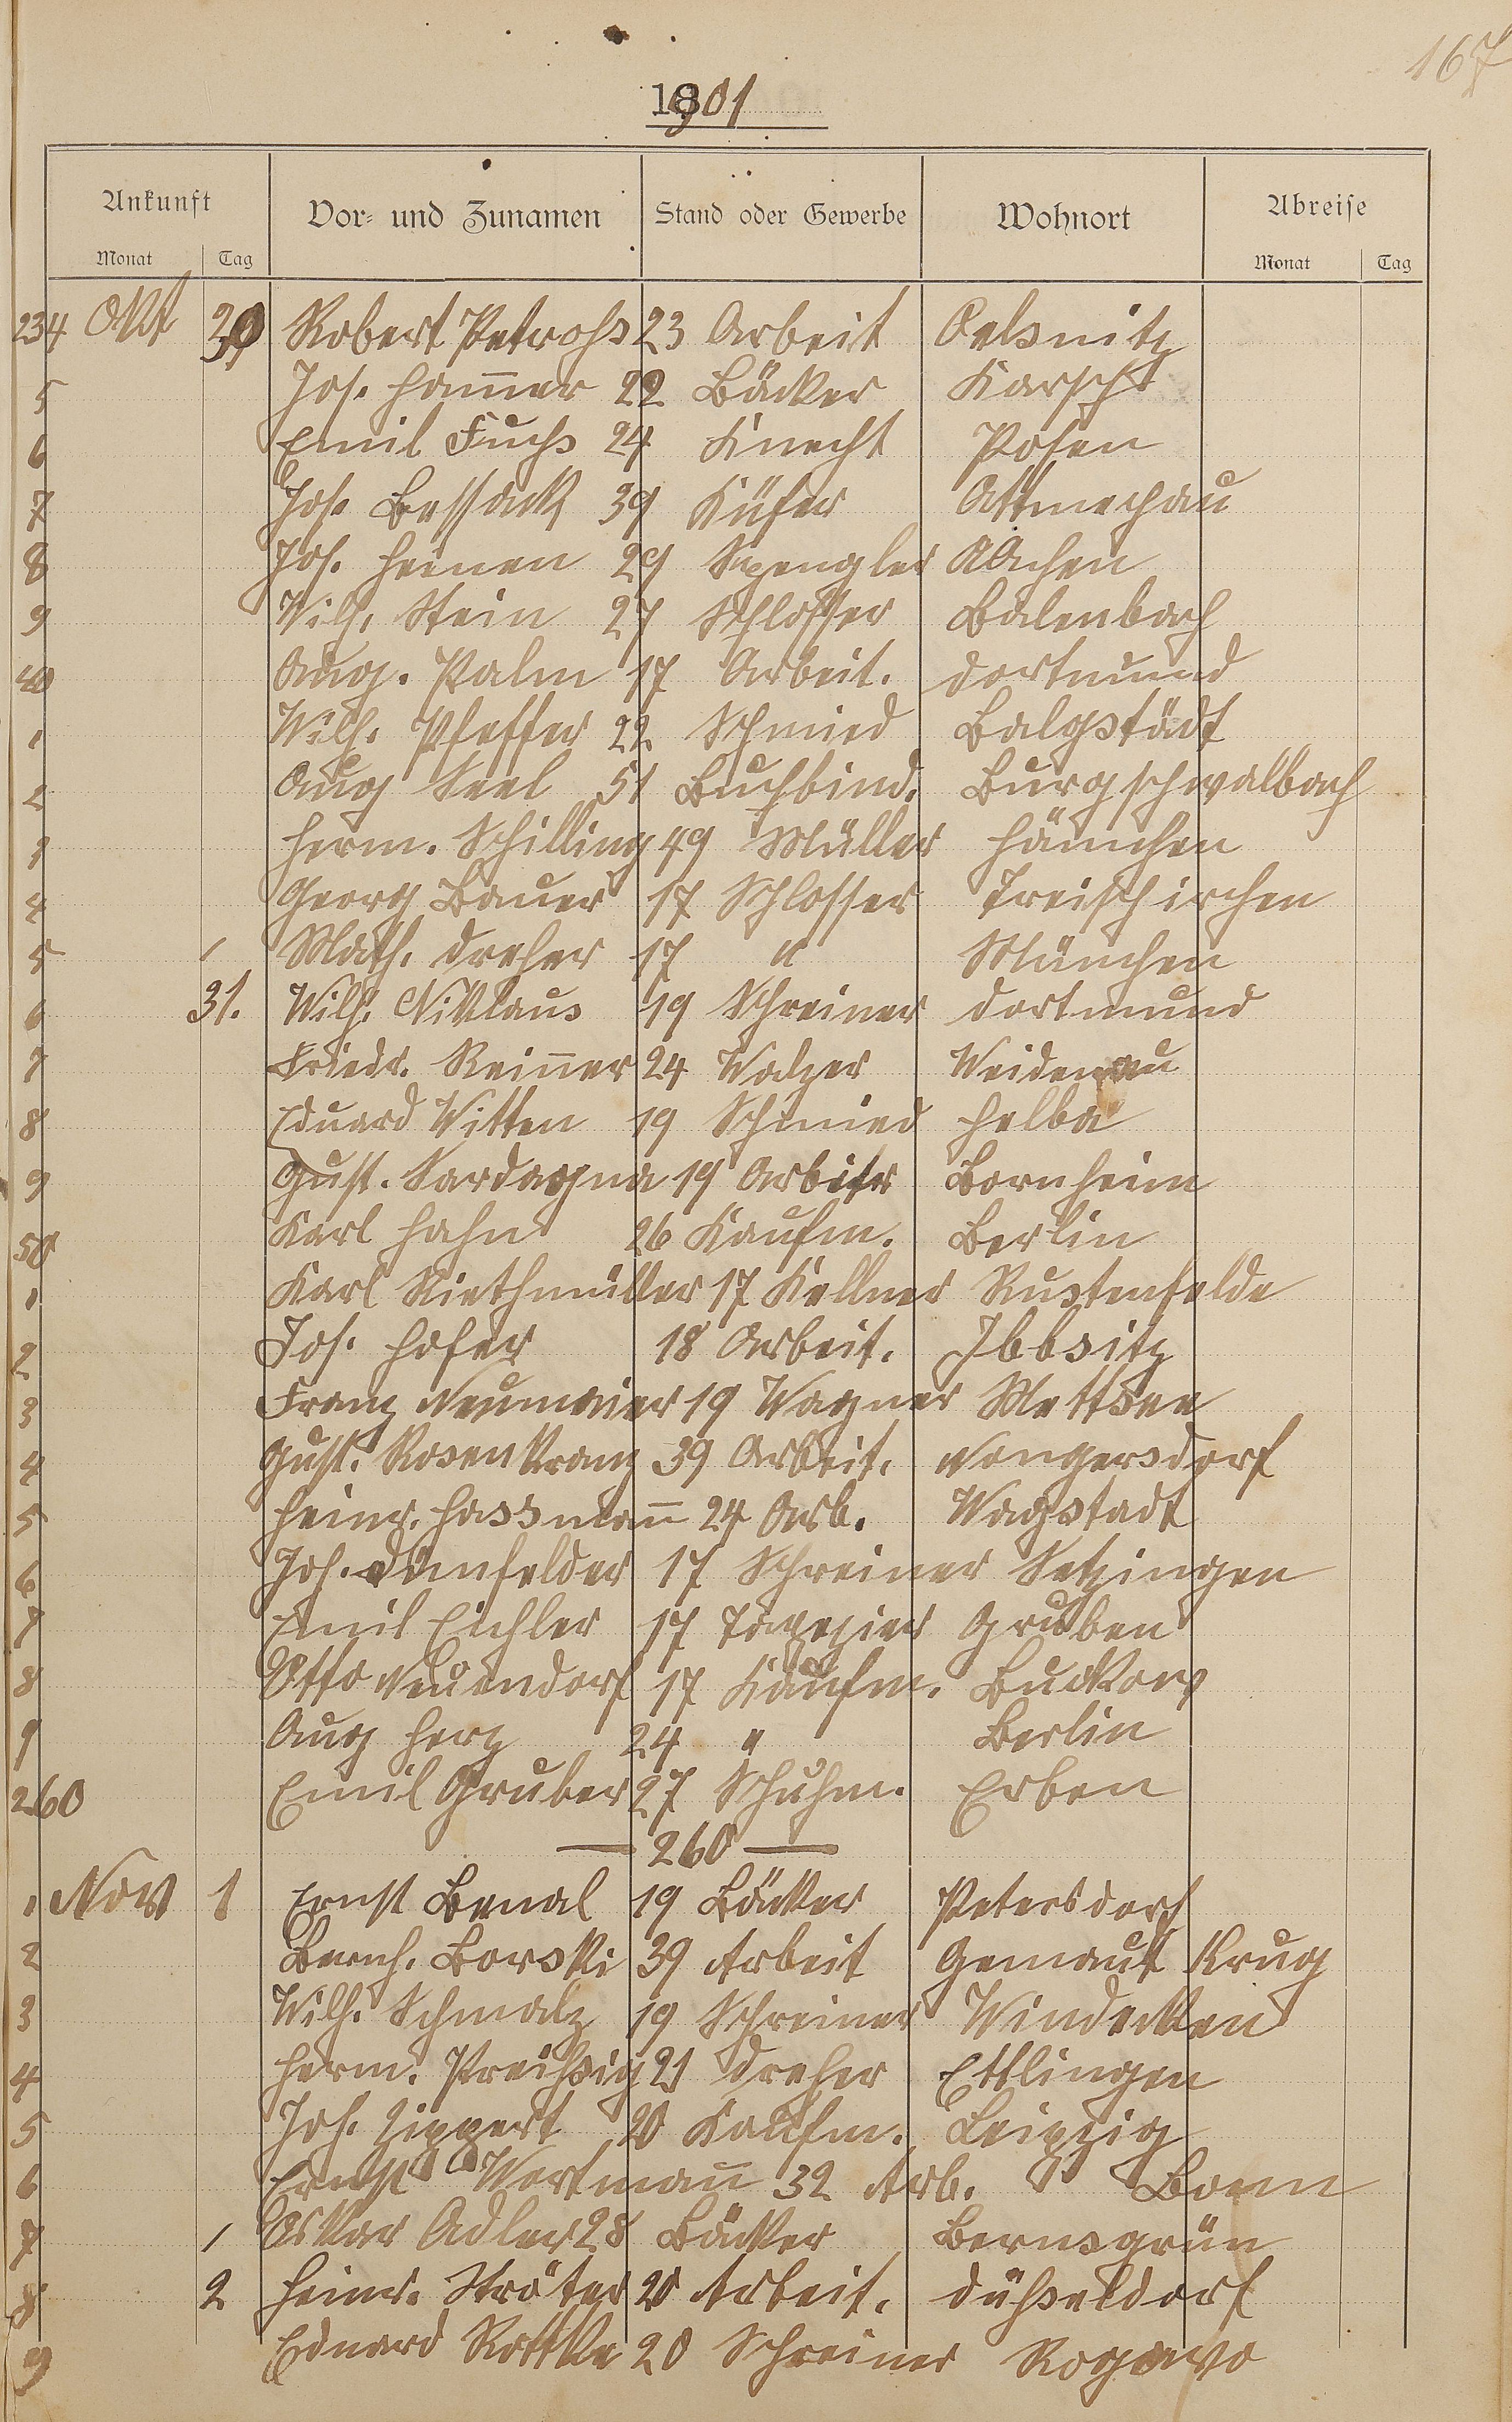 167
1901
Ankunft Vor= und Zunamen Stand oder Gewerbe Wohnort Abreise
Monat Tag Monat Tag
234 Okt 30 Robert Petrohs 23 Arbeit Oelsnitz
5 Jos. Ham̅er 22 Bäcker Karscht
6 Emil Fuchs 24 Knecht Posen
7 Jos. Bessack 39 Küfer Ottmachau
8 Jos. Heinen 29 Spengler Aachen
9 Wilh. Stein 27 Schlosser Balenbach
40 Aug. Palm 17 Arbeit. Dortmund
1 Wilh. Pfeffer 22 Schmied Balgstädt
2 Aug Seel 51 Buchbind. Burgschwalbach
1 Herm. Schilling 49 Müller Hämchen
4 Georg Bauer 17 Schlosser Treischirchen
5 Math. Dreher 17 " München
6 31. Wilh. Nicklaus 19 Schreiner Dortmund
7 Friedr. Rein̅er 24 Walzer Weidenau
8 Eduard Witten 19 Schmied Helba
9 Gust. Sardagna 19 Arbeitr Bornheim
50 Karl Hahn 26 Kaufm. Berlin
1 Karl Riethmüller 17 Kellner Rustenfelde
2 Jos. Hofer 18 Arbeit. Ibbsitz
3 Franz Neumaier 19 Wagner Mattsee
4 Gust. Rosenkranz 39 Arbeit. Nongersdorf
5 Heinr. Hassman̅ 24 Arb. Wagstadt
6 Joh. Dünfelder 17 Schreiner Setzingen
7 Emil Eichler 17 Tapezier Gruben
8 Otto Neuendorf 17 Kaufm. Buckow
9 Aug Herz 24 " Berlin
260 Emil Gruber 27 Schuhm. Erben
— 260 —
1 Nov 1 Ernst Benal 19 Bäcker Petersdorf
2 Bernh. Borski 39 Arbeit Gemauft Krug
3 Wilh. Schmalz 19 Schreiner Windecken
4 Herm. Preihsig 21 Dreher Ettlingen
5 Joh. Lippert 20 Kaufm. Leipzig
6 Ernst Wortman̅ 32 Arb. Bonn
7 Oskar Adler 28 Bäcker Bernsgrün
8 2 Heinr. Ströter 20 Arbeit. Dühseldorf
9 Eduard Rottke 20 Schreiner Rogowo